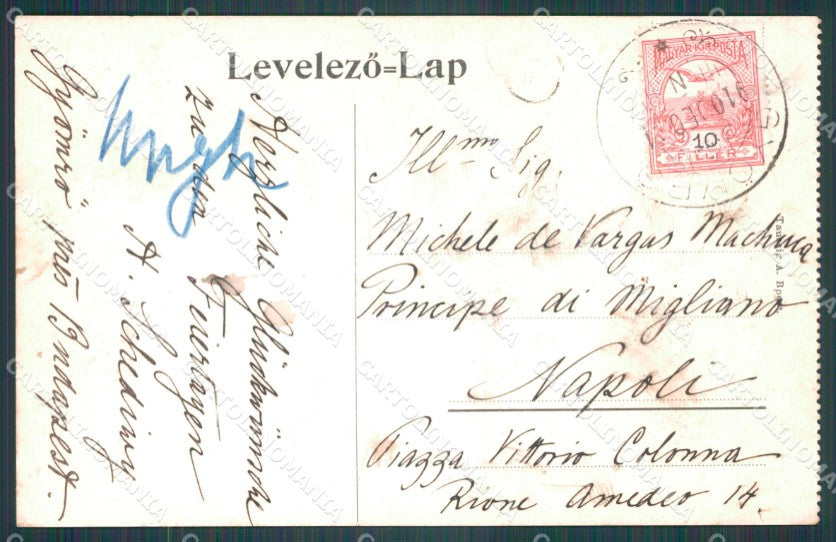 Levelező=Lap
Herzliche Glückwünsche
zu den Feiertagen
A. Schediwy
Gyömrő prés Budapest.
Ungh
Ill.mo Sig.
Michele de Vargas Machuca
Principe di Migliano
Napoli
Piazza Vittorio Colonna
Rione Amedeo 14.
MAGYAR KIR. POSTA
10
FILLÉR
CARTOLINOMANIA